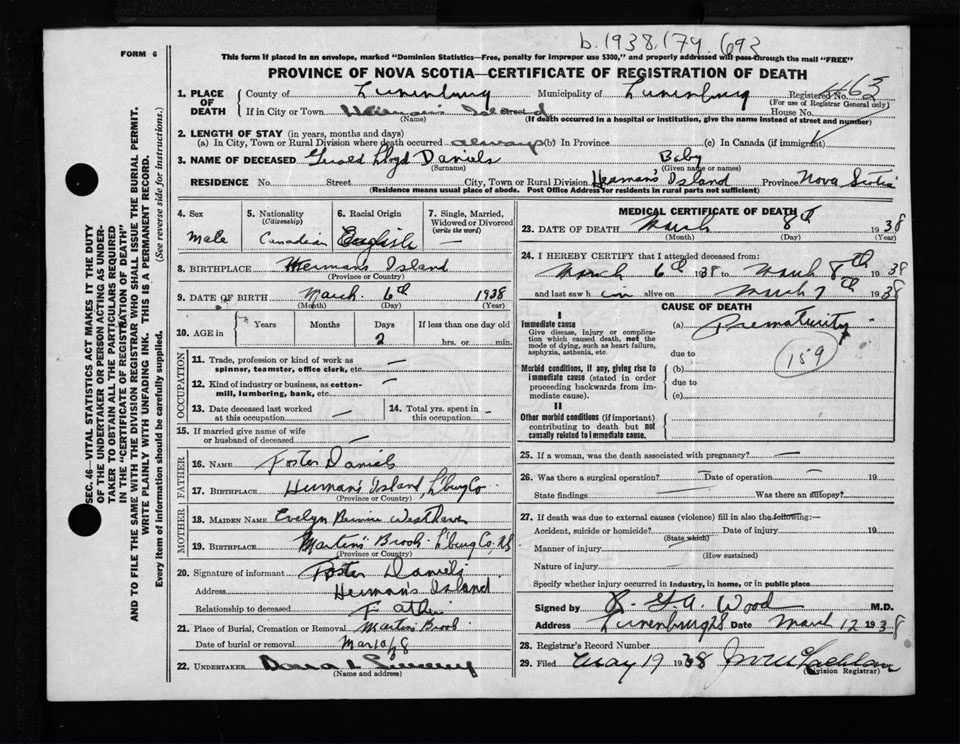 b. 1938. 174. 692
FORM 6
This form if placed in an envelope, marked "Dominion Statistics—Free, penalty for improper use $300," and properly addressed will pass through the mail "FREE"
PROVINCE OF NOVA SCOTIA—CERTIFICATE OF REGISTRATION OF DEATH
SEC. 46—VITAL STATISTICS ACT MAKES IT THE DUTY
OF THE UNDERTAKER OR PERSON ACTING AS UNDER-
TAKER TO OBTAIN ALL THE PARTICULARS REQUIRED
IN THE "CERTIFICATE OF REGISTRATION OF DEATH"
AND TO FILE THE SAME WITH THE DIVISION REGISTRAR WHO SHALL ISSUE THE BURIAL PERMIT.
WRITE PLAINLY WITH UNFADING INK. THIS IS A PERMANENT RECORD.
Every item of information should be carefully supplied. (See reverse side for instructions.)
1. PLACE OF DEATH
County of Lunenburg Municipality of Lunenburg Registered No. 463
(For use of Registrar General only)
If in City or Town Herman's Island House No.
(Name) (If death occurred in a hospital or institution, give the name instead of street and number)
2. LENGTH OF STAY (in years, months and days)
(a) In City, Town or Rural Division where death occurred always (b) In Province (c) In Canada (if immigrant)
3. NAME OF DECEASED Gerald Lloyd Daniels Baby
(Surname) (Given name or names)
RESIDENCE No. Street City, Town or Rural Division Herman's Island Province Nova Scotia
(Residence means usual place of abode. Post Office Address for residents in rural parts not sufficient)
4. Sex
Male
5. Nationality
(Citizenship)
Canadian
6. Racial Origin
English
7. Single, Married,
Widowed or Divorced
(write the word)
—
8. BIRTHPLACE Hermans Island
(Province or Country)
9. DATE OF BIRTH March 6th 1938
(Month) (Day) (Year)
10. AGE in Years Months Days If less than one day old
2 hrs. or min.
OCCUPATION
11. Trade, profession or kind of work as
spinner, teamster, office clerk, etc. —
12. Kind of industry or business, as cotton-
mill, lumbering, bank, etc. —
13. Date deceased last worked
at this occupation —
14. Total yrs. spent in
this occupation –
15. If married give name of wife
or husband of deceased —
FATHER
16. NAME Foster Daniels
17. BIRTHPLACE Herman's Island, L'burg Co
(Province or Country)
MOTHER
18. MAIDEN NAME Evelyn
19. BIRTHPLACE Martin's Brook L'burg Co. N.S
(Province or Country)
20. Signature of informant Foster Daniels
Address Herman's Island
Relationship to deceased Father
21. Place of Burial, Cremation or Removal Martins Brook
Date of burial or removal Mar 10/38
22. UNDERTAKER
(Name and address)
MEDICAL CERTIFICATE OF DEATH
23. DATE OF DEATH March 8th 1938
(Month) (Day) (Year)
24. I HEREBY CERTIFY that I attended deceased from:
March 6th 1938 to March 8th 1938
and last saw him alive on March 7th 1938
CAUSE OF DEATH
I
Immediate cause
Give disease, injury or complica-
tion which caused death, not the
mode of dying, such as heart failure,
asphyxia, asthenia, etc.
(a) Prematurity
due to
159
Morbid conditions, if any, giving rise to
immediate cause (stated in order
proceeding backwards from im-
mediate cause).
(b)
due to
(c)
II
Other morbid conditions (if important)
contributing to death but not
causally related to immediate cause.
25. If a woman, was the death associated with pregnancy? —
26. Was there a surgical operation? — Date of operation — 19
State findings Was there an autopsy?
27. If death was due to external causes (violence) fill in also the following:—
Accident, suicide or homicide? Date of injury 19
(State which)
Manner of injury —
(How sustained)
Nature of injury —
Specify whether injury occurred in industry, in home, or in public place
Signed by R. G. A. Wood M.D.
Address Lunenburg N.S Date March 12 1938
28. Registrar's Record Number
29. Filed May 19 1938
(Division Registrar)